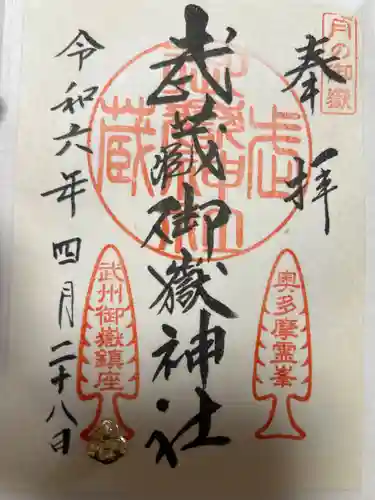 月の御嶽
奉拝
奥多摩霊峯
武蔵御嶽神社
武州御嶽鎮座
令和六年四月二十八日